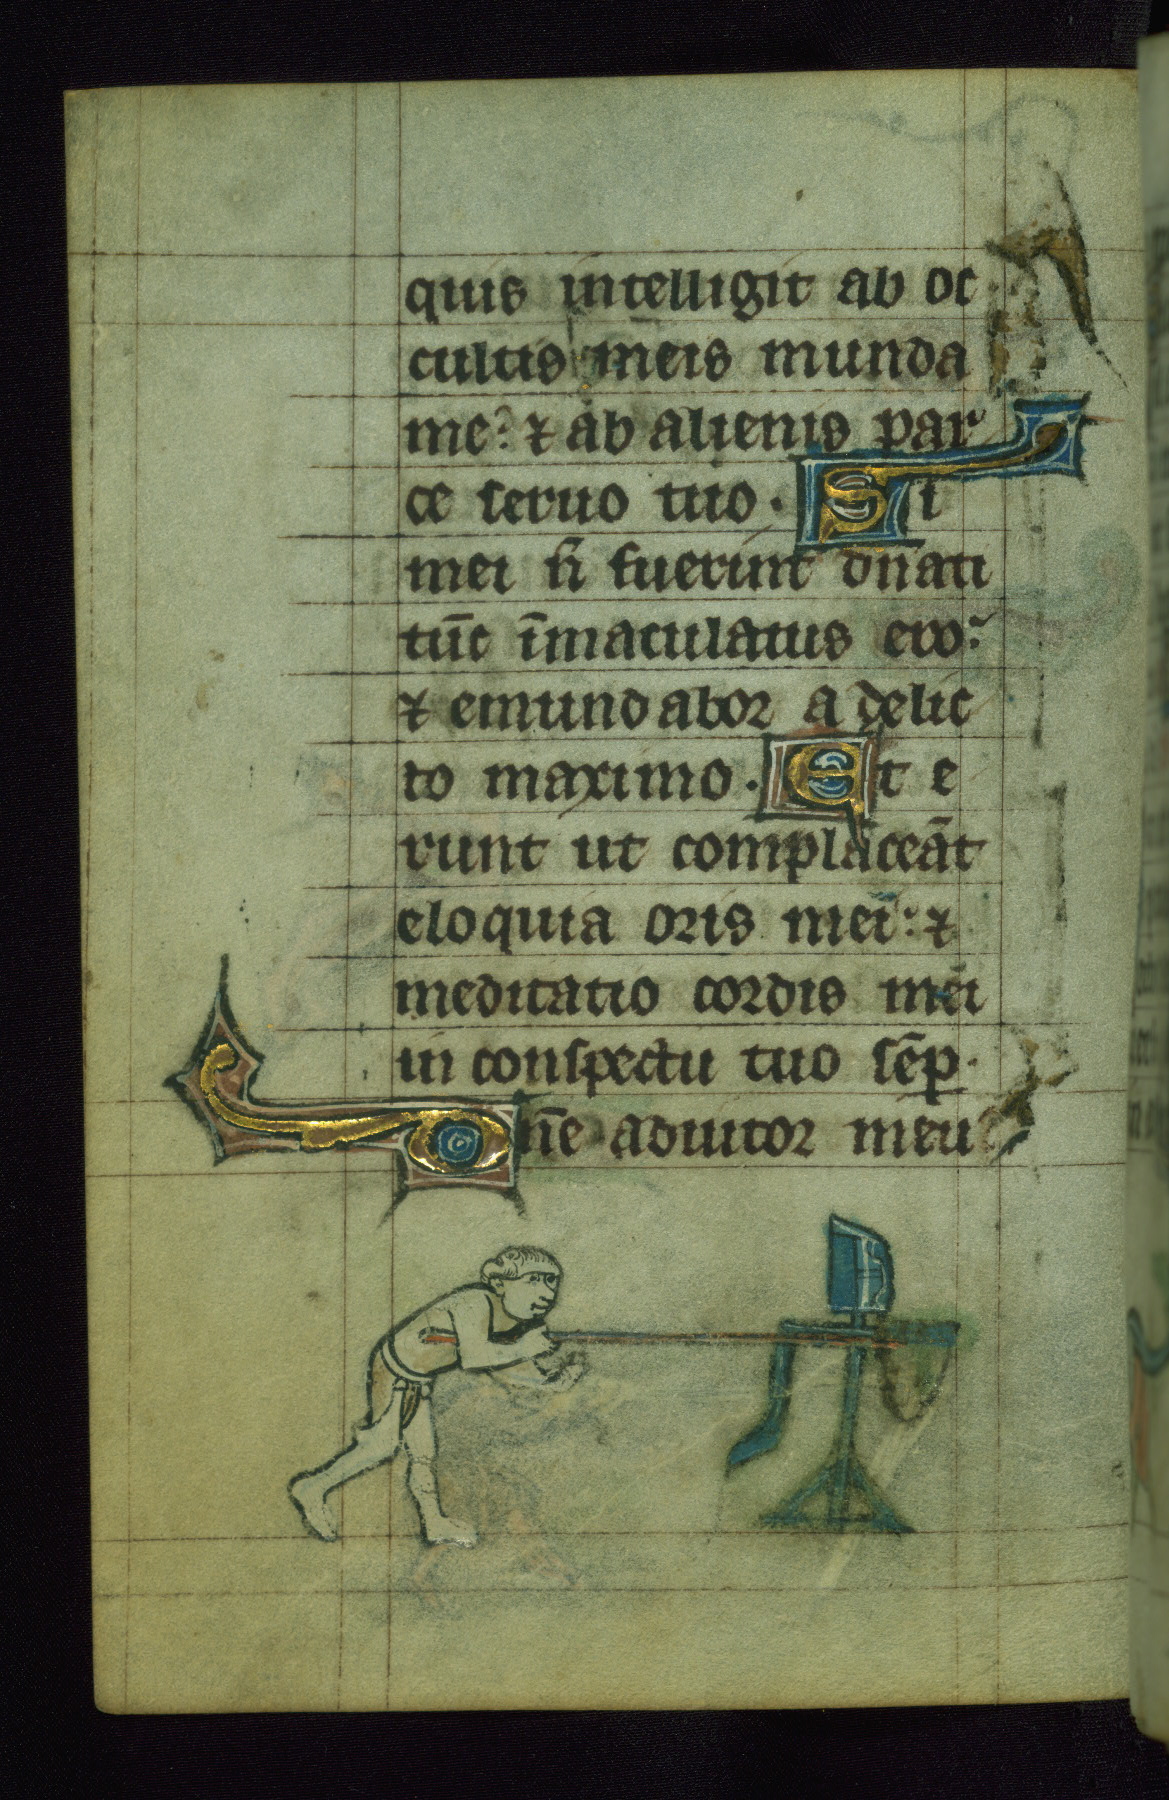 quis intelligit ab oc
cultis meis munda
me: ⁊ ab alienis par
ce seruo tuo. Si
mei n̄ fuerint dn̄ati
tūc īmaculatus ero:
⁊ emundabor a delic
to maximo. Et e
runt ut complaceāt
eloquia oris mei: ⁊
meditatio cordis mei
in conspectu tuo sēp.
Dn̄e adiutor meu